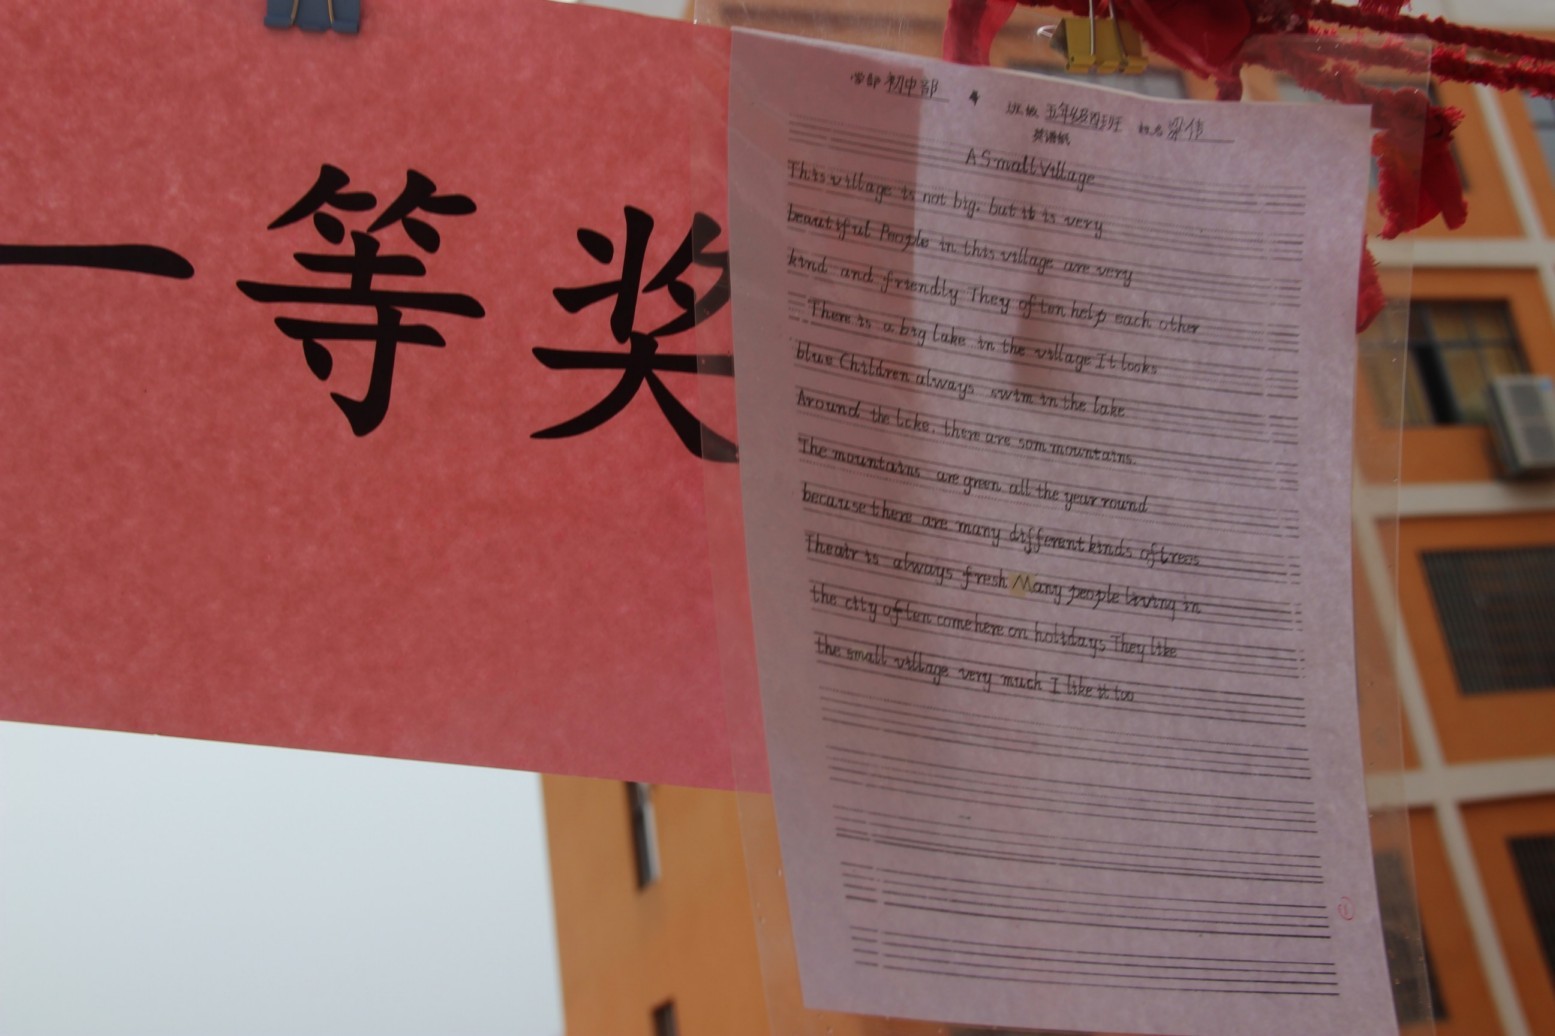 一等奖
学部 初中部
班级 五年级四班 姓名 梁倩
英语纸
A Small Village
This village is not big, but it is very
beautiful People in this village are very
kind and friendly They often help each other
There is a big lake in the village It looks
blue Children always swim in the lake
Around the lake, there are som mountains.
The mountains are green all the year round
because there are many different kinds of trees
The air is always fresh Many people living in
the city often come here on holidays They like
the small village very much I like it too